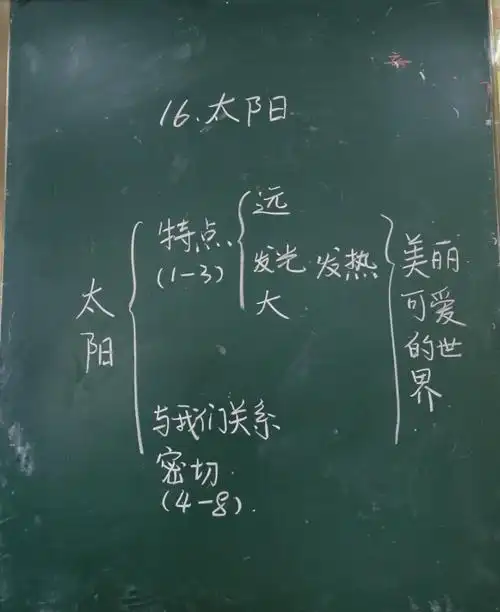 16.太阳
太阳
特点
(1-3)
远
发光 发热
大
与我们关系
密切
(4-8).
美丽
可爱
的世
界